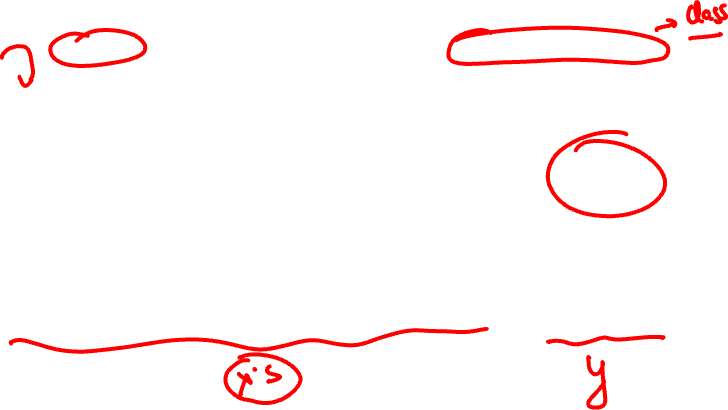 class
x's
y